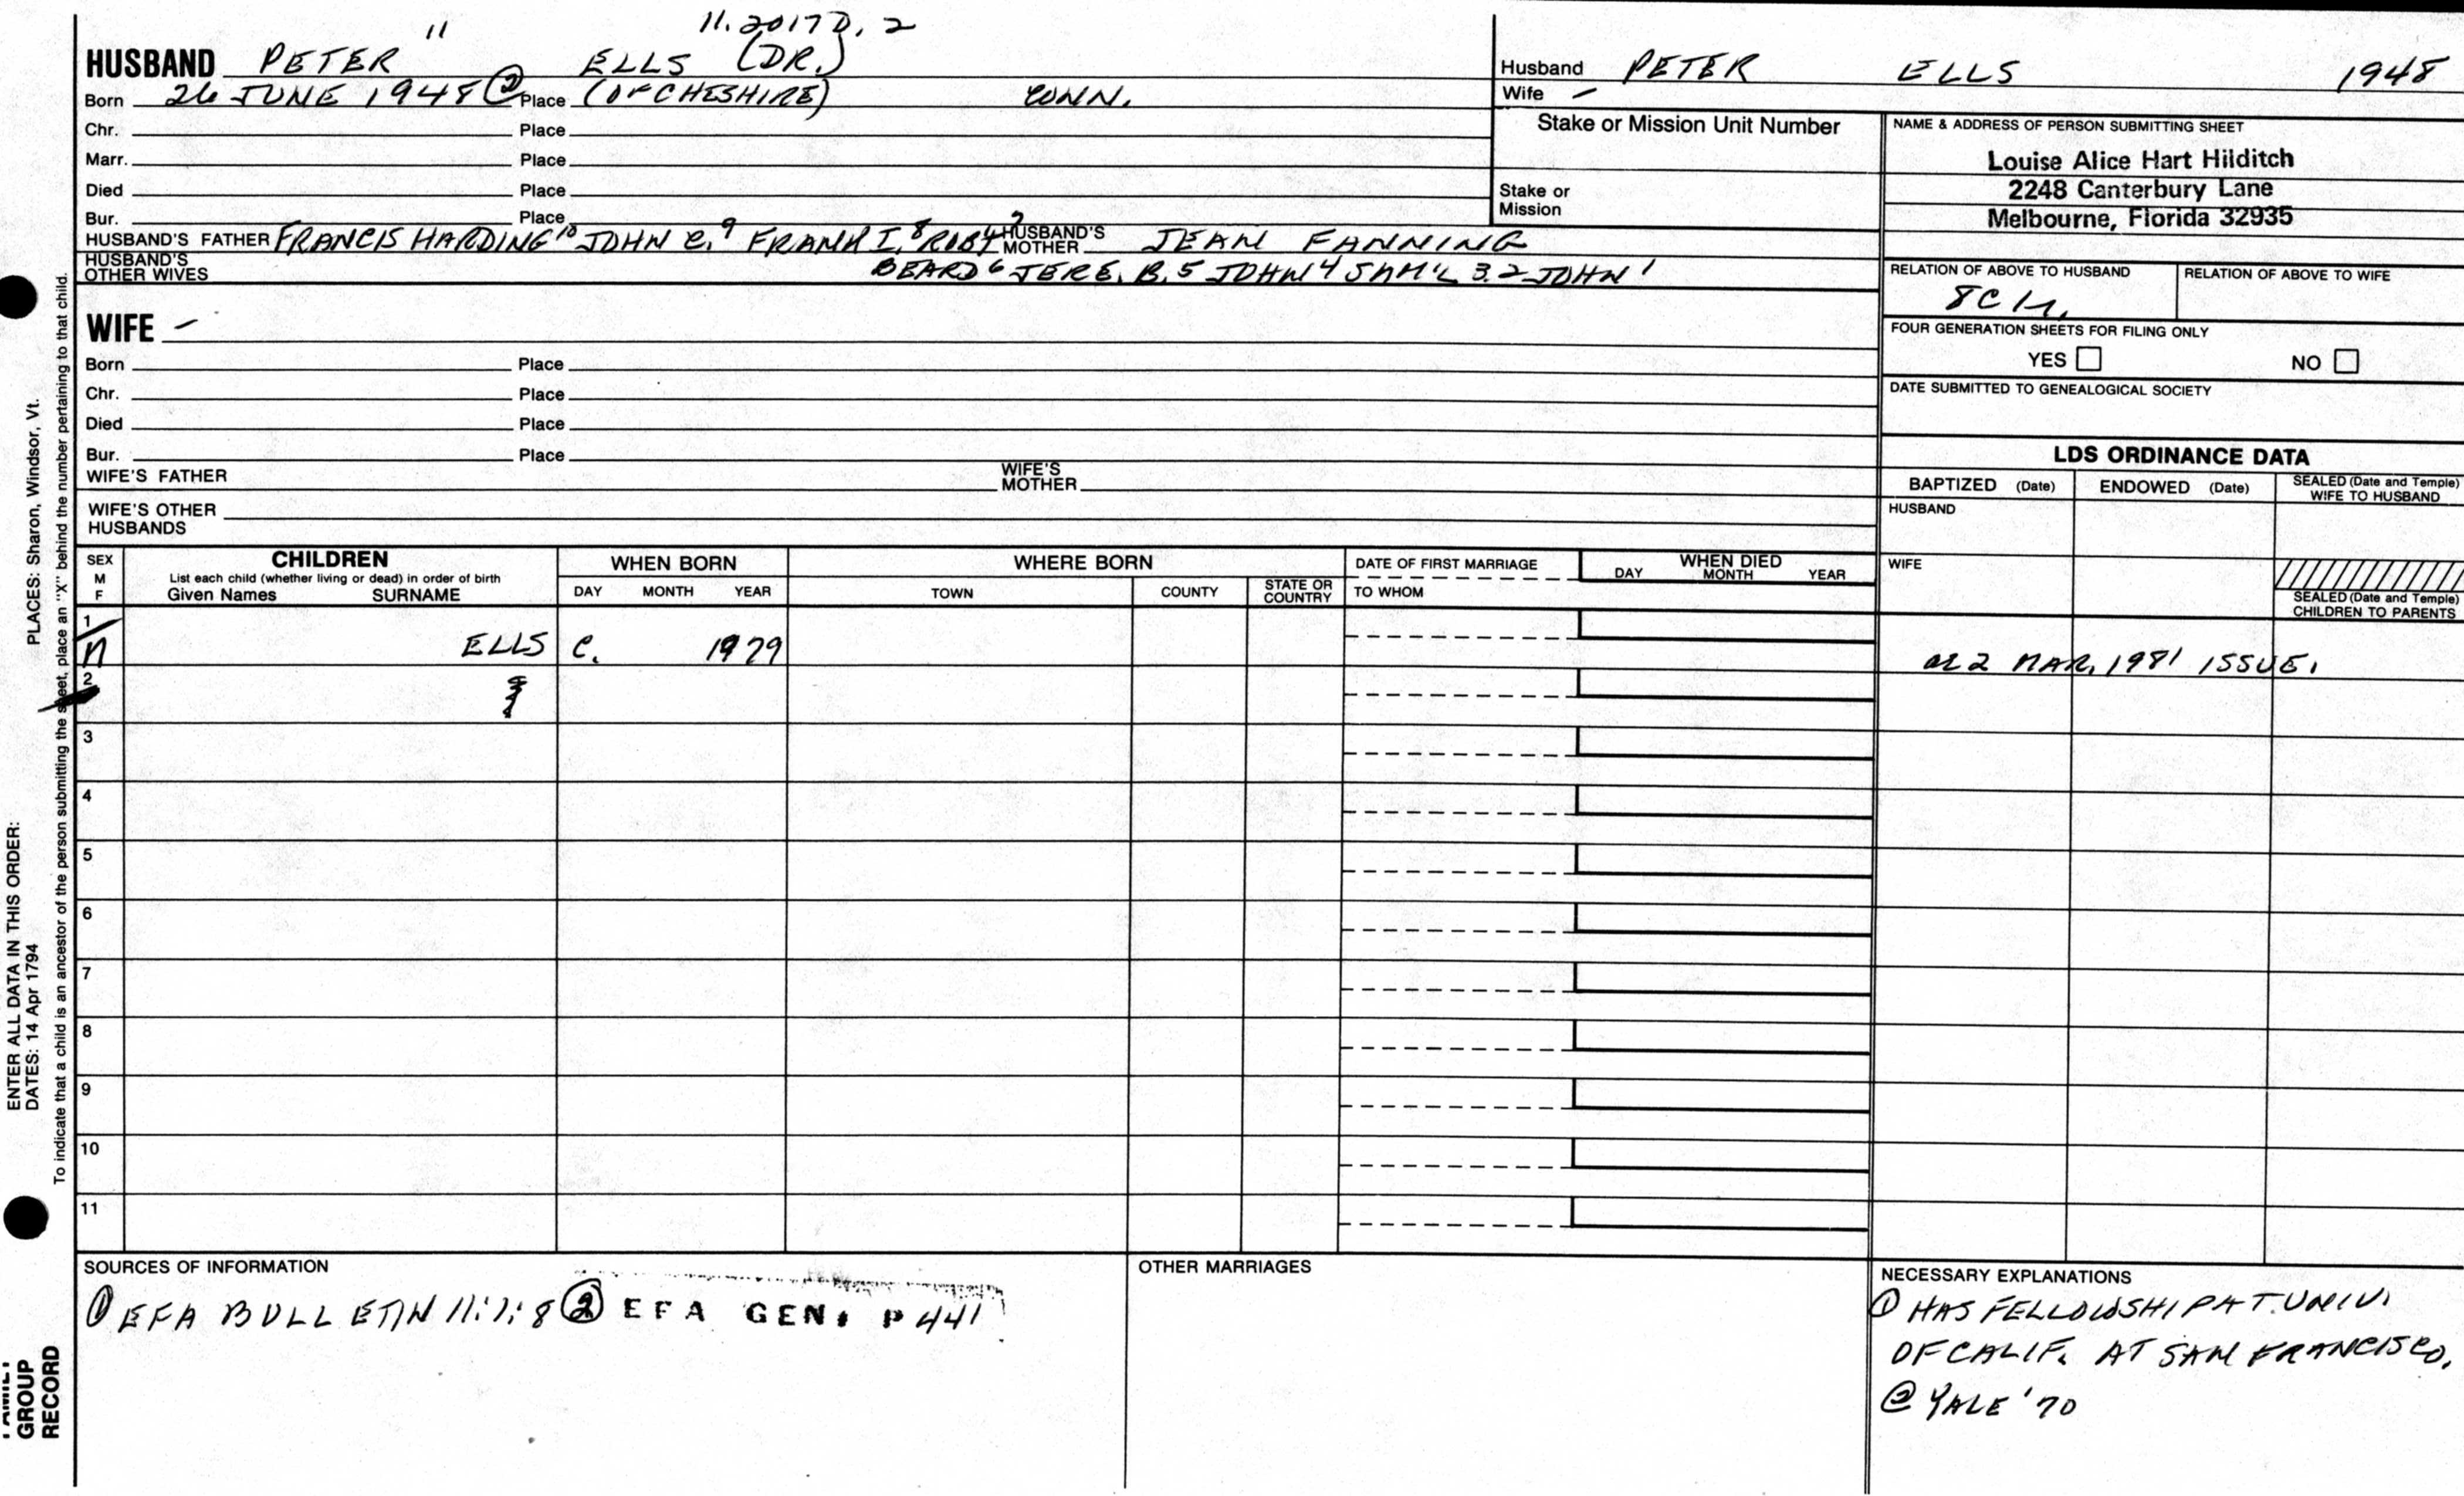 11.2017D.2
HUSBAND PETER 11 ELLS (DR.)
Born 26 JUNE 1948 ② Place (OF CHESHIRE) CONN.
Chr. Place
Marr. Place
Died Place
Bur. Place
HUSBAND'S FATHER FRANCIS HARDING 10 JOHN C. 9 FRANK I. 8 ROBT 7 HUSBAND'S MOTHER JEAN FANNING
HUSBAND'S OTHER WIVES BEARD 6 JERE. B. 5 JOHN 4 SAM'L 3.2 JOHN 1
Husband PETER ELLS 1948
Wife –
Stake or Mission Unit Number
Stake or Mission
NAME & ADDRESS OF PERSON SUBMITTING SHEET
Louise Alice Hart Hilditch
2248 Canterbury Lane
Melbourne, Florida 32935
RELATION OF ABOVE TO HUSBAND RELATION OF ABOVE TO WIFE
8C
FOUR GENERATION SHEETS FOR FILING ONLY
YES NO
DATE SUBMITTED TO GENEALOGICAL SOCIETY
WIFE –
Born Place
Chr. Place
Died Place
Bur. Place
WIFE'S FATHER WIFE'S MOTHER
WIFE'S OTHER HUSBANDS
LDS ORDINANCE DATA
BAPTIZED (Date) ENDOWED (Date) SEALED (Date and Temple) WIFE TO HUSBAND
HUSBAND
WIFE
SEALED (Date and Temple) CHILDREN TO PARENTS
SEX M F
CHILDREN
List each child (whether living or dead) in order of birth
Given Names SURNAME
WHEN BORN
DAY MONTH YEAR
WHERE BORN
TOWN COUNTY STATE OR COUNTRY
DATE OF FIRST MARRIAGE
TO WHOM
WHEN DIED
DAY MONTH YEAR
1
ELLS C. 1979 MAR. 1981 ISSUE.
2
3
4
5
6
7
8
9
10
11
SOURCES OF INFORMATION
① EFA BULLETIN 11:1:8 ② EFA GEN. P 441
OTHER MARRIAGES
NECESSARY EXPLANATIONS
① HAS FELLOWSHIP AT UNIV.
OF CALIF. AT SAN FRANCISCO.
② YALE '70
ENTER ALL DATA IN THIS ORDER:
DATES: 14 Apr 1794 PLACES: Sharon, Windsor, Vt.
To indicate that a child is an ancestor of the person submitting the sheet, place an "X" behind the number pertaining to that child.
GROUP
RECORD